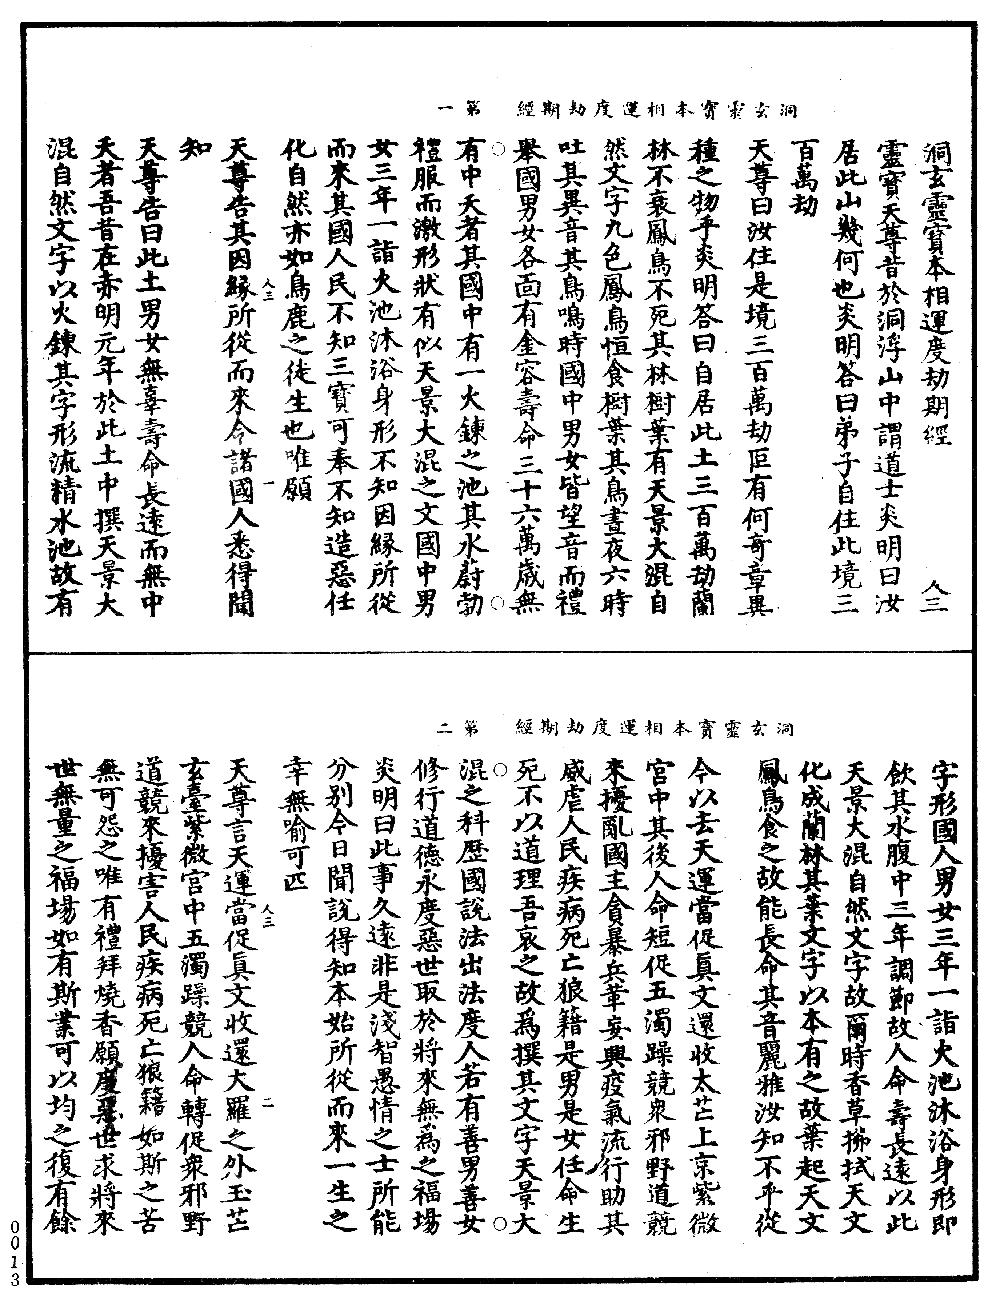 洞玄靈寶本相運度劫期經　第一
洞玄靈寶本相運度劫期經　人三
靈寶天尊昔於洞浮山中謂道士炎明曰汝
居此山幾何也炎明答曰弟子自住此境三
百萬劫
天尊曰汝住是境三百萬劫叵有何奇章異
種之物乎炎明答曰自居此土三百萬劫蘭
林不衰鳳鳥不死其林樹葉有天景大混自
然文字九色鳳鳥恒食樹葉其鳥晝夜六時
吐其異音其鳥鳴時國中男女皆望音而禮
舉國男女各面有金容壽命三十六萬歲無
有中夭者其國中有一火鍊之池其水蔚勃
禮服而激形狀有似天景大混之文國中男
女三年一詣火池沐浴身形不知因緣所從
而來其國人民不知三寶可奉不知造惡任
化自然亦如鳥鹿之徒生也唯願
人三　一
天尊告其因緣所從而來令諸國人悉得聞
知
天尊告曰此土男女無辜壽命長遠而無中
夭者吾昔在赤明元年於此土中撰天景大
混自然文字以火鍊其字形流精水池故有
洞玄靈寶本相運度劫期經　第二
字形國人男女三年一詣火池沐浴身形即
飲其水腹中三年調節故人命壽長遠以此
天景大混自然文字故爾時香草拂拭天文
化成蘭林其葉文字以本有之故葉起天文
鳳鳥食之故能長命其音麗雅汝知不乎從
今以去天運當促真文還收太芒上京紫微
宮中其後人命短促五濁躁競衆邪野道競
來擾亂國主貪暴兵革妄興疫氣流行助其
威虐人民疾病死亡狼籍是男是女任命生
死不以道理吾哀之故為撰其文字天景大
混之科歷國說法出法度人若有善男善女
修行道德永度惡世取於將來無為之福場
炎明曰此事久遠非是淺智愚情之士所能
分別今日聞說得知本始所從而來一生之
幸無喻可匹
人三　二
天尊言天運當促真文收還大羅之外玉芒
玄臺紫微宮中五濁躁競人命轉促衆邪野
道競來擾害人民疾病死亡狼籍如斯之苦
無可怨之唯有禮拜燒香願度惡世求將來
世無量之福場如有斯業可以均之復有餘
0013